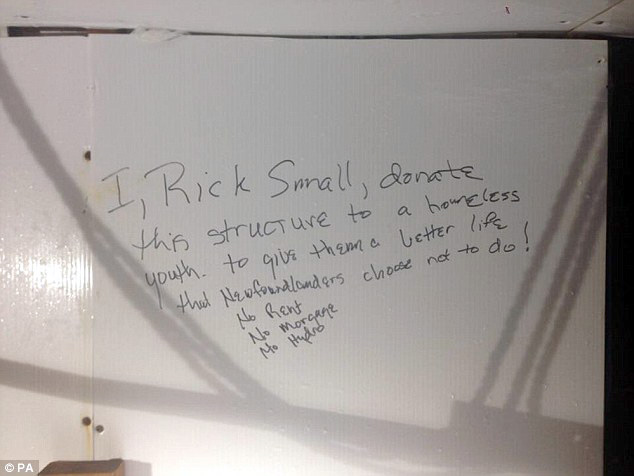 I, Rick Small, donate
this structure to a homeless
youth. to give them a better life
that Newfoundlanders choose not to do!
No Rent
No morgage
No Hydro
© PA